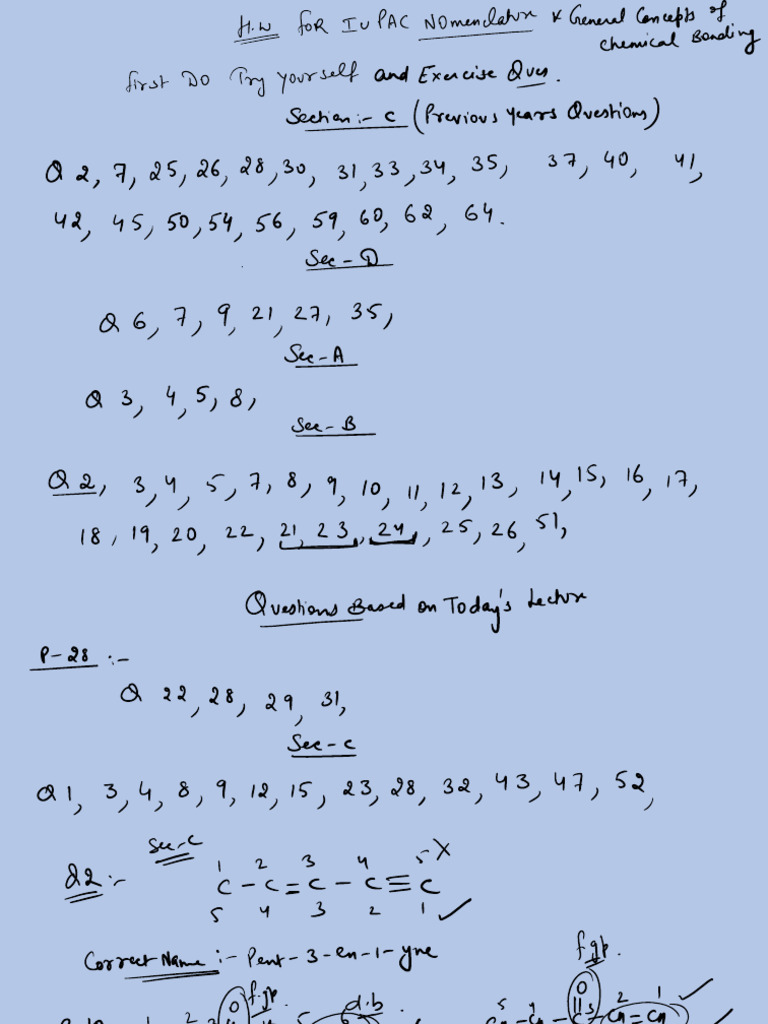 H.W FOR IUPAC Nomenclature & General Concepts of
Chemical Bonding
first Do Try yourself and Exercise Ques.
Section :- C (Previous years Questions)
Q 2, 7, 25, 26, 28, 30, 31, 33, 34, 35, 37, 40, 41,
42, 45, 50, 54, 56, 59, 60, 62, 64.
Sec - D
Q 6, 7, 9, 21, 27, 35,
Sec - A
Q 3, 4, 5, 8,
Sec - B
Q 2, 3, 4, 5, 7, 8, 9, 10, 11, 12, 13, 14, 15, 16, 17,
18, 19, 20, 22, 21, 23, 24, 25, 26, 51,
Questions Based on Today's Lecture
P-28 :-
Q 22, 28, 29, 31,
Sec - C
Q 1, 3, 4, 8, 9, 12, 15, 23, 28, 32, 43, 47, 52,
Sec-C
Q2 :-
1 2 3 4 5 X
C - C = C - C ≡ C
5 4 3 2 1 ✓
Correct Name :- Pent-3-en-1-yne
f.gp.
f.gp. d.b.